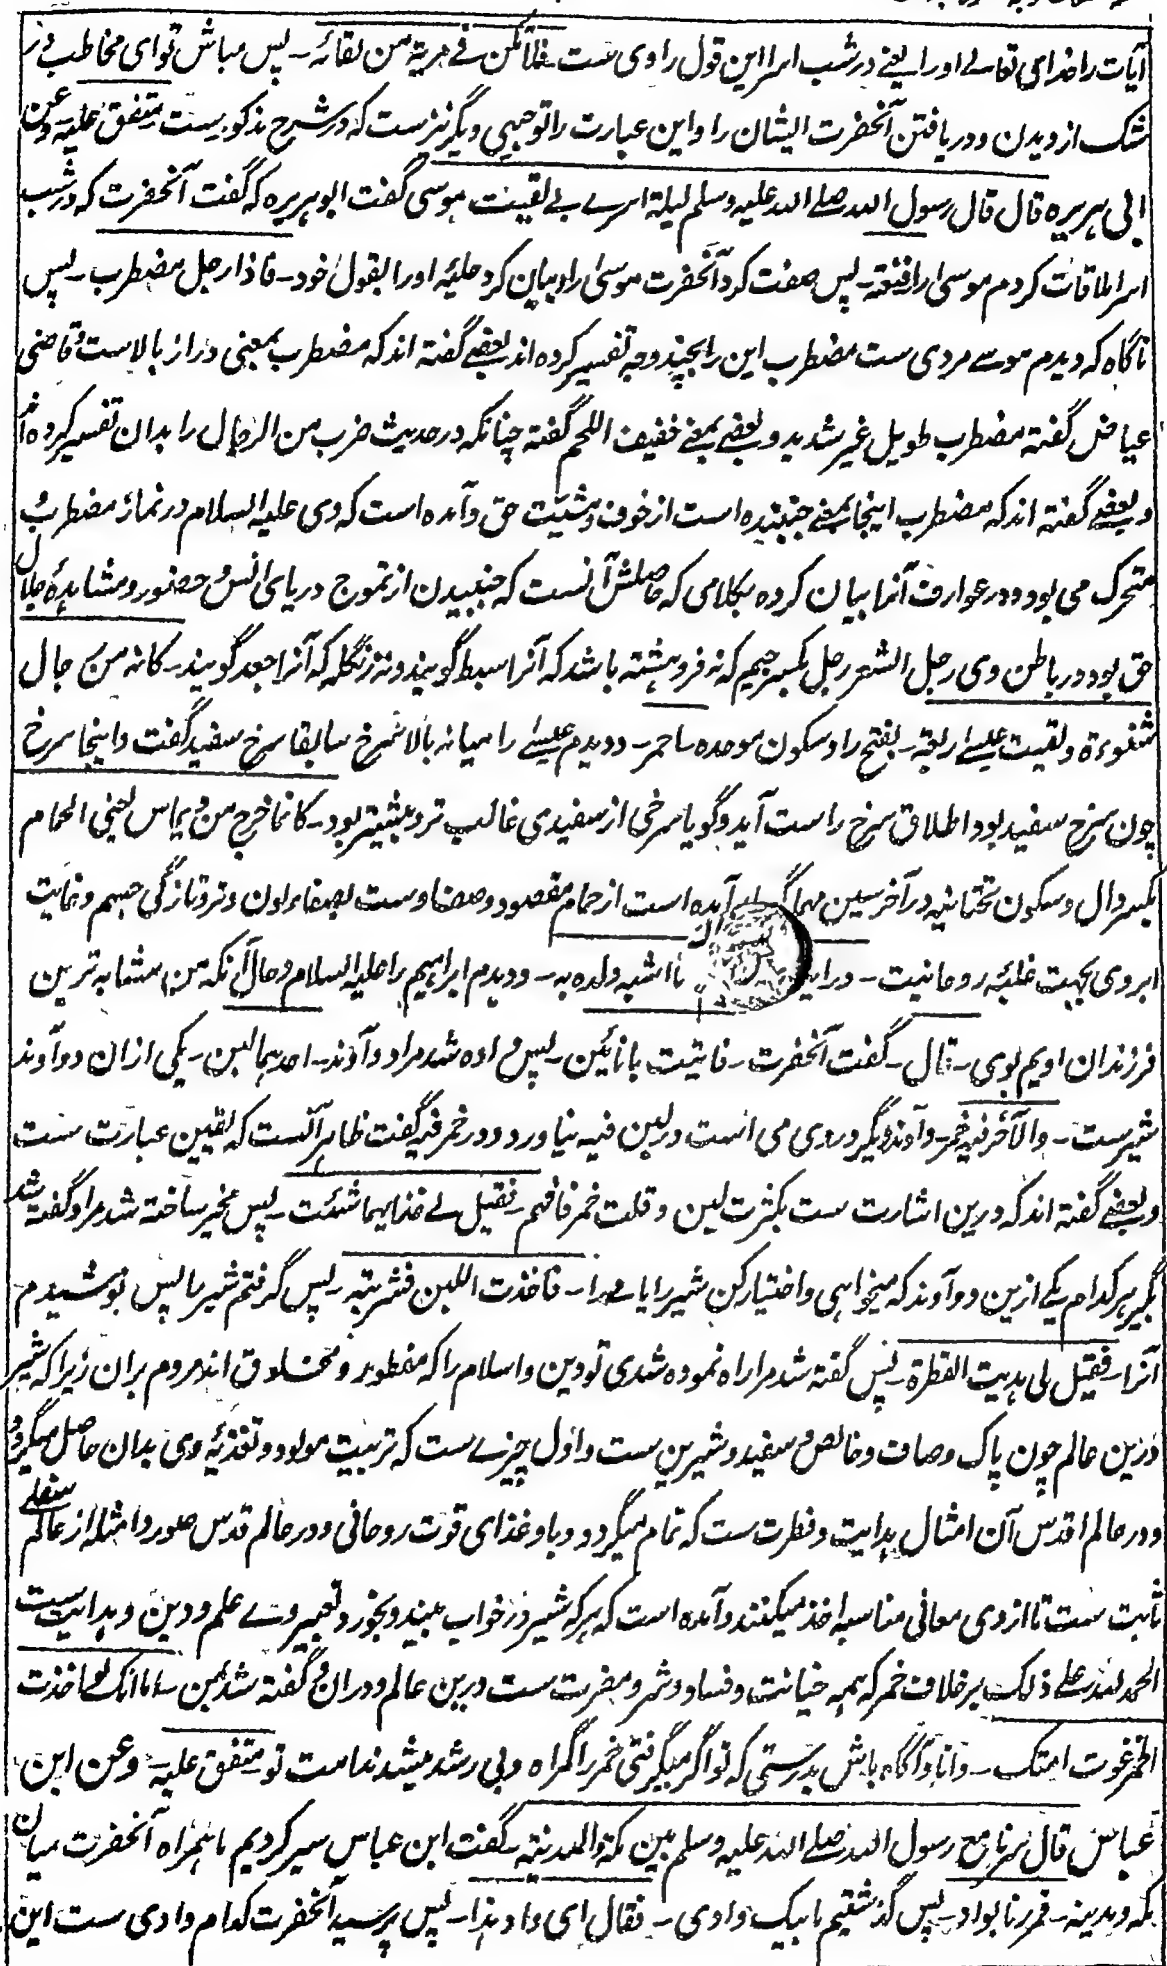 آیات را خدای تعالے اورا یعنے در شب اسرا این قول راوی ست فلا تکن فے مریة من لقائه ۔ پس مباش تو ای مخاطب در
شک از دیدن و دریافتن آنحضرت ایشان را و این عبارت را توجیهی دیگر نیز ست که در شرح مذکور ست متفق علیه وعن
ابی هریره قال قال رسول الله صلے الله علیه وسلم لیلة اسرے بے لقیت موسی گفت ابو هریره که گفت آنحضرت که در شب
اسرا ملاقات کردم موسیٰ را فنعته ۔ پس صفت کرد آنحضرت موسیٰ را و بیان کرد حلیهٔ او را بقول خود ۔ فاذا رجل مضطرب ۔ پس
ناگاه که دیدم موسے مردی ست مضطرب این را بچند وجه تفسیر کرده اند بعضے گفته اند که مضطرب بمعنی دراز بالاست و قاضی
عیاض گفته مضطرب طویل غیر شدید و بعضے بمعنے خفیف اللحم گفته چنانکه در حدیث ضرب من الرجال را بدان تفسیر کرده اند
و بعضے گفته اند که مضطرب اینجا بمعنے جنبنده است از خوف و خشیت حق و آمده است که وی علیه السلام در نماز مضطرب و
متحرک می بود و در عوارف آنرا بیان کرده بکلامی که حاصلش آنست که جنبیدن از تموج دریای انس و حضور و مشاهدهٔ جلال
حق بود در باطن وی رجل الشعر رجل بکسر جیم که نه فروهشته باشد که آنرا سبط گویند و نه زنگله که آنرا جعد گویند ۔ کانه من رجال
شنوءة ولقیت عیسیٰ ربعة ۔ بفتح را و سکون موحده ۔ احمر ۔ و دیدم عیسےٰ را میانه بالا سرخ سابقا سرخ سفید گفت و اینجا سرخ
چون سرخ سفید بود اطلاق سرخ راست آید و گویا سرخی از سفیدی غالب تر و بیشتر بود ۔ کانما خرج من دیماس یعنی الحمام
بکسر دال و سکون تحتانیه در آخر سین مهمله آمده است از حمام مقصود وصف اوست بصفاء لون و تر و تازگی جسم و غایت
ابروی بجهت غلبهٔ روحانیت ۔ ورایت انا اشبه ولده به ۔ و دیدم ابراهیم را علیه السلام و حال آنکه من مشابه ترین
فرزندان اویم بوی ۔ قال ۔ گفت آنحضرت ۔ فاتیت بانائین ۔ پس داده شد مرا دو آوند ۔ احدهما لبن ۔ یکی ازان دو آوند
شیر ست ۔ والآخر فیه خمر ۔ و آوند دیگر در وی می است در لبن فیه نیاورد و در خمر فیه گفت ظاهر آنست که تفنن عبارت ست
و بعضے گفته اند که درین اشارت ست بکثرت لبن و قلت خمر فافهم ۔ فقیل لے خذ ایهما شئت ۔ پس مخیر ساخته شد مرا و گفته شد
بگیر هر کدام یکے ازین دو آوند که میخواهی و اختیار کن شیر را یا مے را ۔ فاخذت اللبن فشربته ۔ پس گرفتم شیر را پس نوشیدم
آنرا ۔ فقیل لی هدیت الفطرة ۔ پس گفته شد مرا راه نموده شدی تو دین و اسلام را که مفطور و مخلوق اند مردم بران زیرا که شیر
درین عالم چون پاک و صاف و خالص و سفید و شیرین ست و اول چیزے ست که تربیت مولود و تغذیهٔ وی بدان حاصل میگردد
و در عالم اقدس آن امثال هدایت و فطرت ست که تمام میگردد و باو غذای قوت روحانی و در عالم قدس صور و امثله از عالم سفلے
ثابت ست تا از وی معانی مناسبه اخذ میکنند و آمده است که هر که شیر در خواب بیند و بخورد تعبیر وے علم و دین و هدایت ست
الحمد لله علے ذلک بر خلاف خمر که همه خباثت و فساد و شر و مضرت ست درین عالم و دران و گفته شد بمن ۔ اما انک لو اخذت
الخمر غوت امتک ۔ دانا و آگاه باش بدرستی که تو اگر میگرفتی خمر را گمراه و بی رشد میشدند امت تو متفق علیه ۔ وعن ابن
عباس قال سرنا مع رسول الله صلے الله علیه وسلم بین مکة والمدینة ۔ گفت ابن عباس سیر کردیم ما همراه آنحضرت میان
مکه و مدینه ۔ فمررنا بواد ۔ پس گذشتیم ما بیک وادی ۔ فقال ای واد هذا ۔ پس پرسید آنحضرت کدام وادی ست این